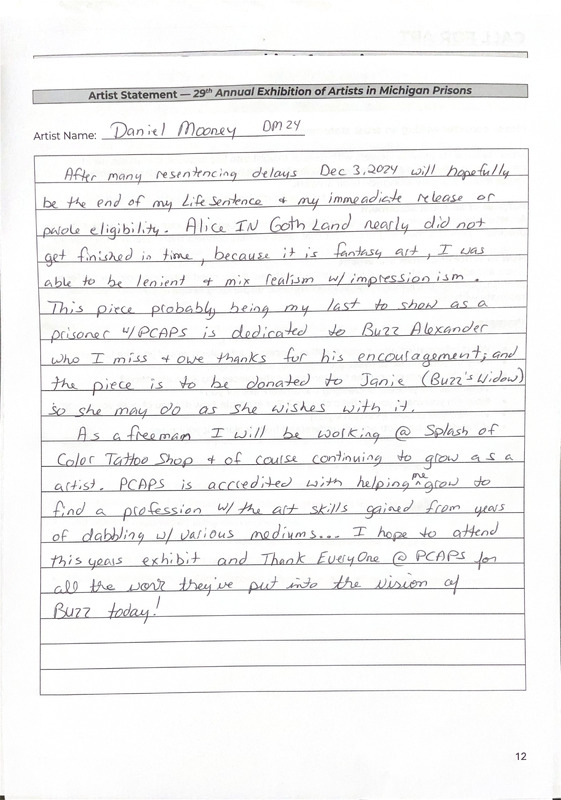 Artist Statement — 29th Annual Exhibition of Artists in Michigan Prisons
Artist Name: Daniel Mooney DM24
After many resentencing delays Dec 3, 2024 will hopefully
be the end of my Life Sentence & my immeadiate release or
parole eligibility. Alice IN Goth Land nearly did not
get finished in time, because it is fantasy art, I was
able to be lenient & mix realism w/ impressionism.
This piece probably being my last to show as a
prisoner w/PCAPS is dedicated to Buzz Alexander
who I miss & owe thanks for his encouragement; and
the piece is to be donated to Janie (Buzz's Widow)
so she may do as she wishes with it.
As a freeman I will be working @ Splash of
Color Tattoo Shop & of course continuing to grow as a
artist. PCAPS is accredited with helping me grow to
find a profession w/ the art skills gained from years
of dabbling w/ various mediums... I hope to attend
this years exhibit and Thank EveryOne @ PCAPS for
all the work they've put into the vision of
Buzz today!
12